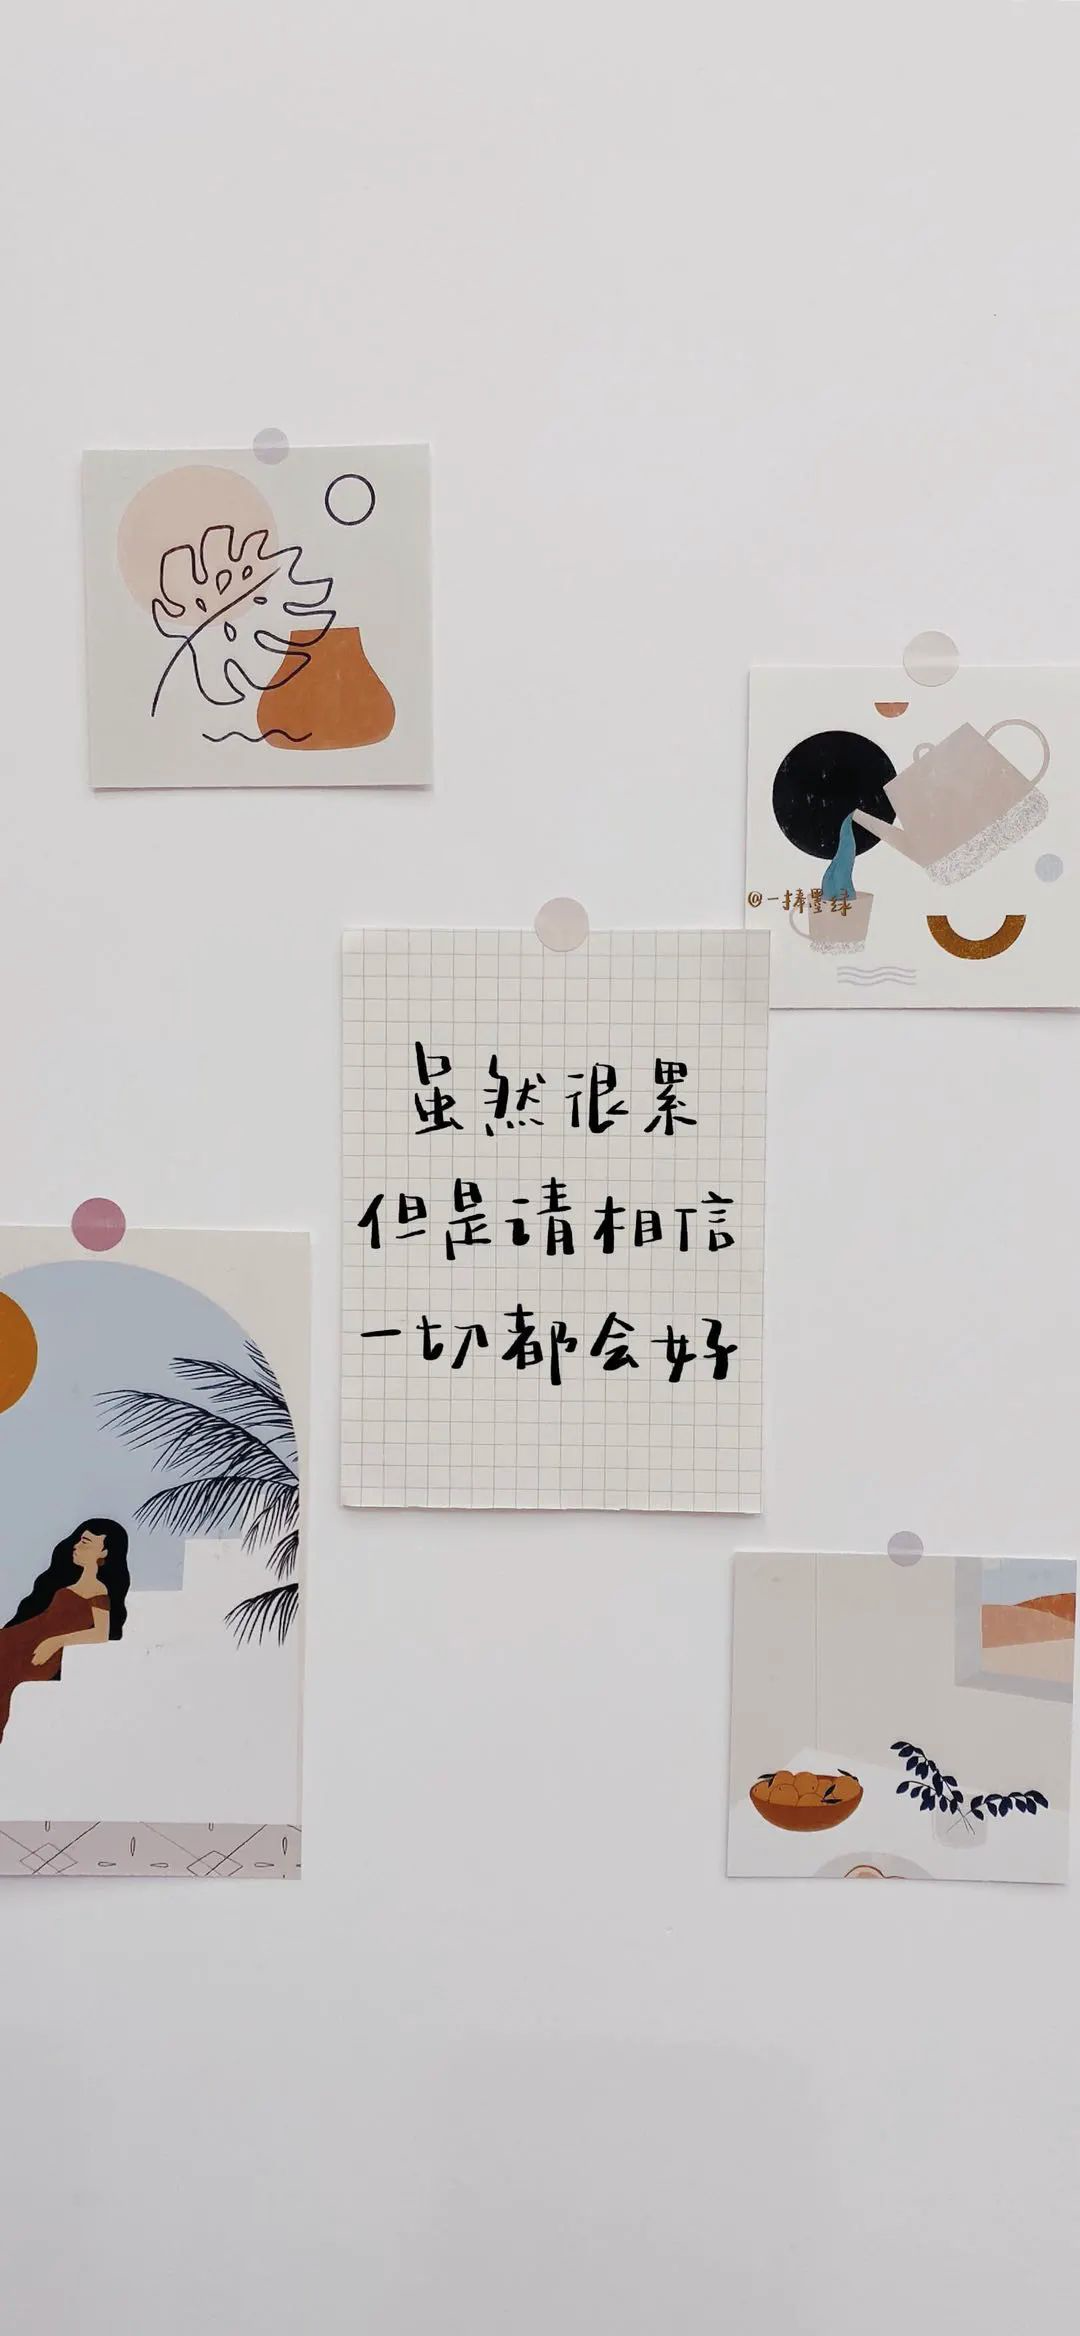 @一捧墨绿
虽然很累
但是请相信
一切都会好